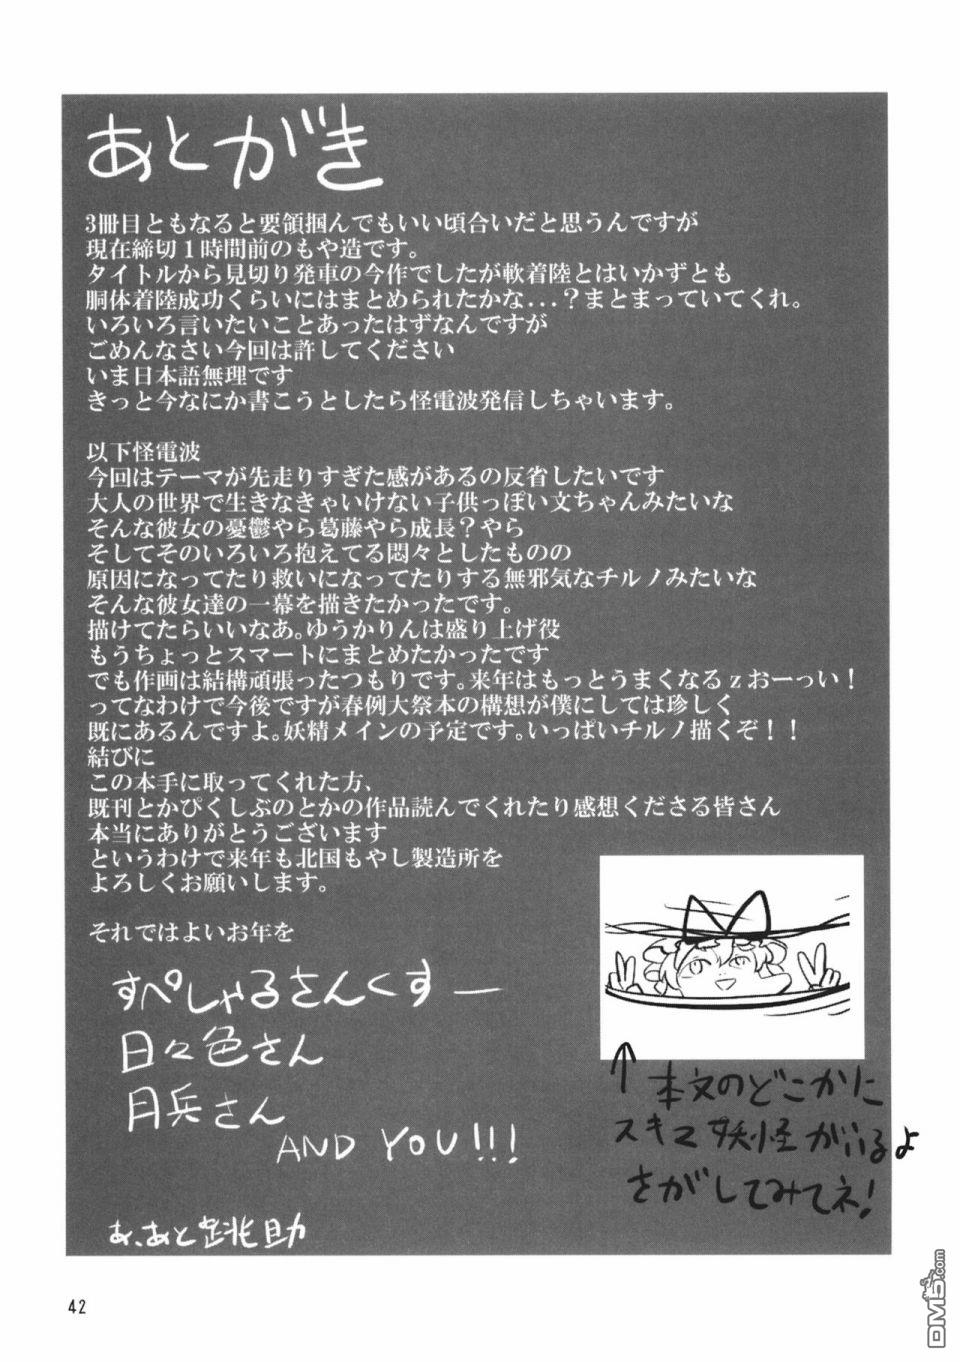 あとがき
3冊目ともなると要領掴んでもいい頃合いだと思うんですが
現在締切1時間前のもや造です。
タイトルから見切り発車の今作でしたが軟着陸とはいかずとも
胴体着陸成功くらいにはまとめられたかな...？まとまっていてくれ。
いろいろ言いたいことあったはずなんですが
ごめんなさい今回は許してください
いま日本語無理です
きっと今なにか書こうとしたら怪電波発信しちゃいます。
以下怪電波
今回はテーマが先走りすぎた感があるの反省したいです
大人の世界で生きなきゃいけない子供っぽい文ちゃんみたいな
そんな彼女の憂鬱やら葛藤やら成長？やら
そしてそのいろいろ抱えてる悶々としたものの
原因になってたり救いになってたりする無邪気なチルノみたいな
そんな彼女達の一幕を描きたかったです。
描けてたらいいなあ。ゆうかりんは盛り上げ役
もうちょっとスマートにまとめたかったです
でも作画は結構頑張ったつもりです。来年はもっとうまくなるｚおーっい！
ってなわけで今後ですが春例大祭本の構想が僕にしては珍しく
既にあるんですよ。妖精メインの予定です。いっぱいチルノ描くぞ！！
結びに
この本手に取ってくれた方、
既刊とかぴくしぶのとかの作品読んでくれたり感想くださる皆さん
本当にありがとうございます
というわけで来年も北国もやし製造所を
よろしくお願いします。
それではよいお年を
すぺしゃるさんくすー
日々色さん
月兵さん
AND YOU!!!
あ、あと 助
↑本文のどこかに
スキマ妖怪がいるよ
さがしてみてネ!
42
DM5.com